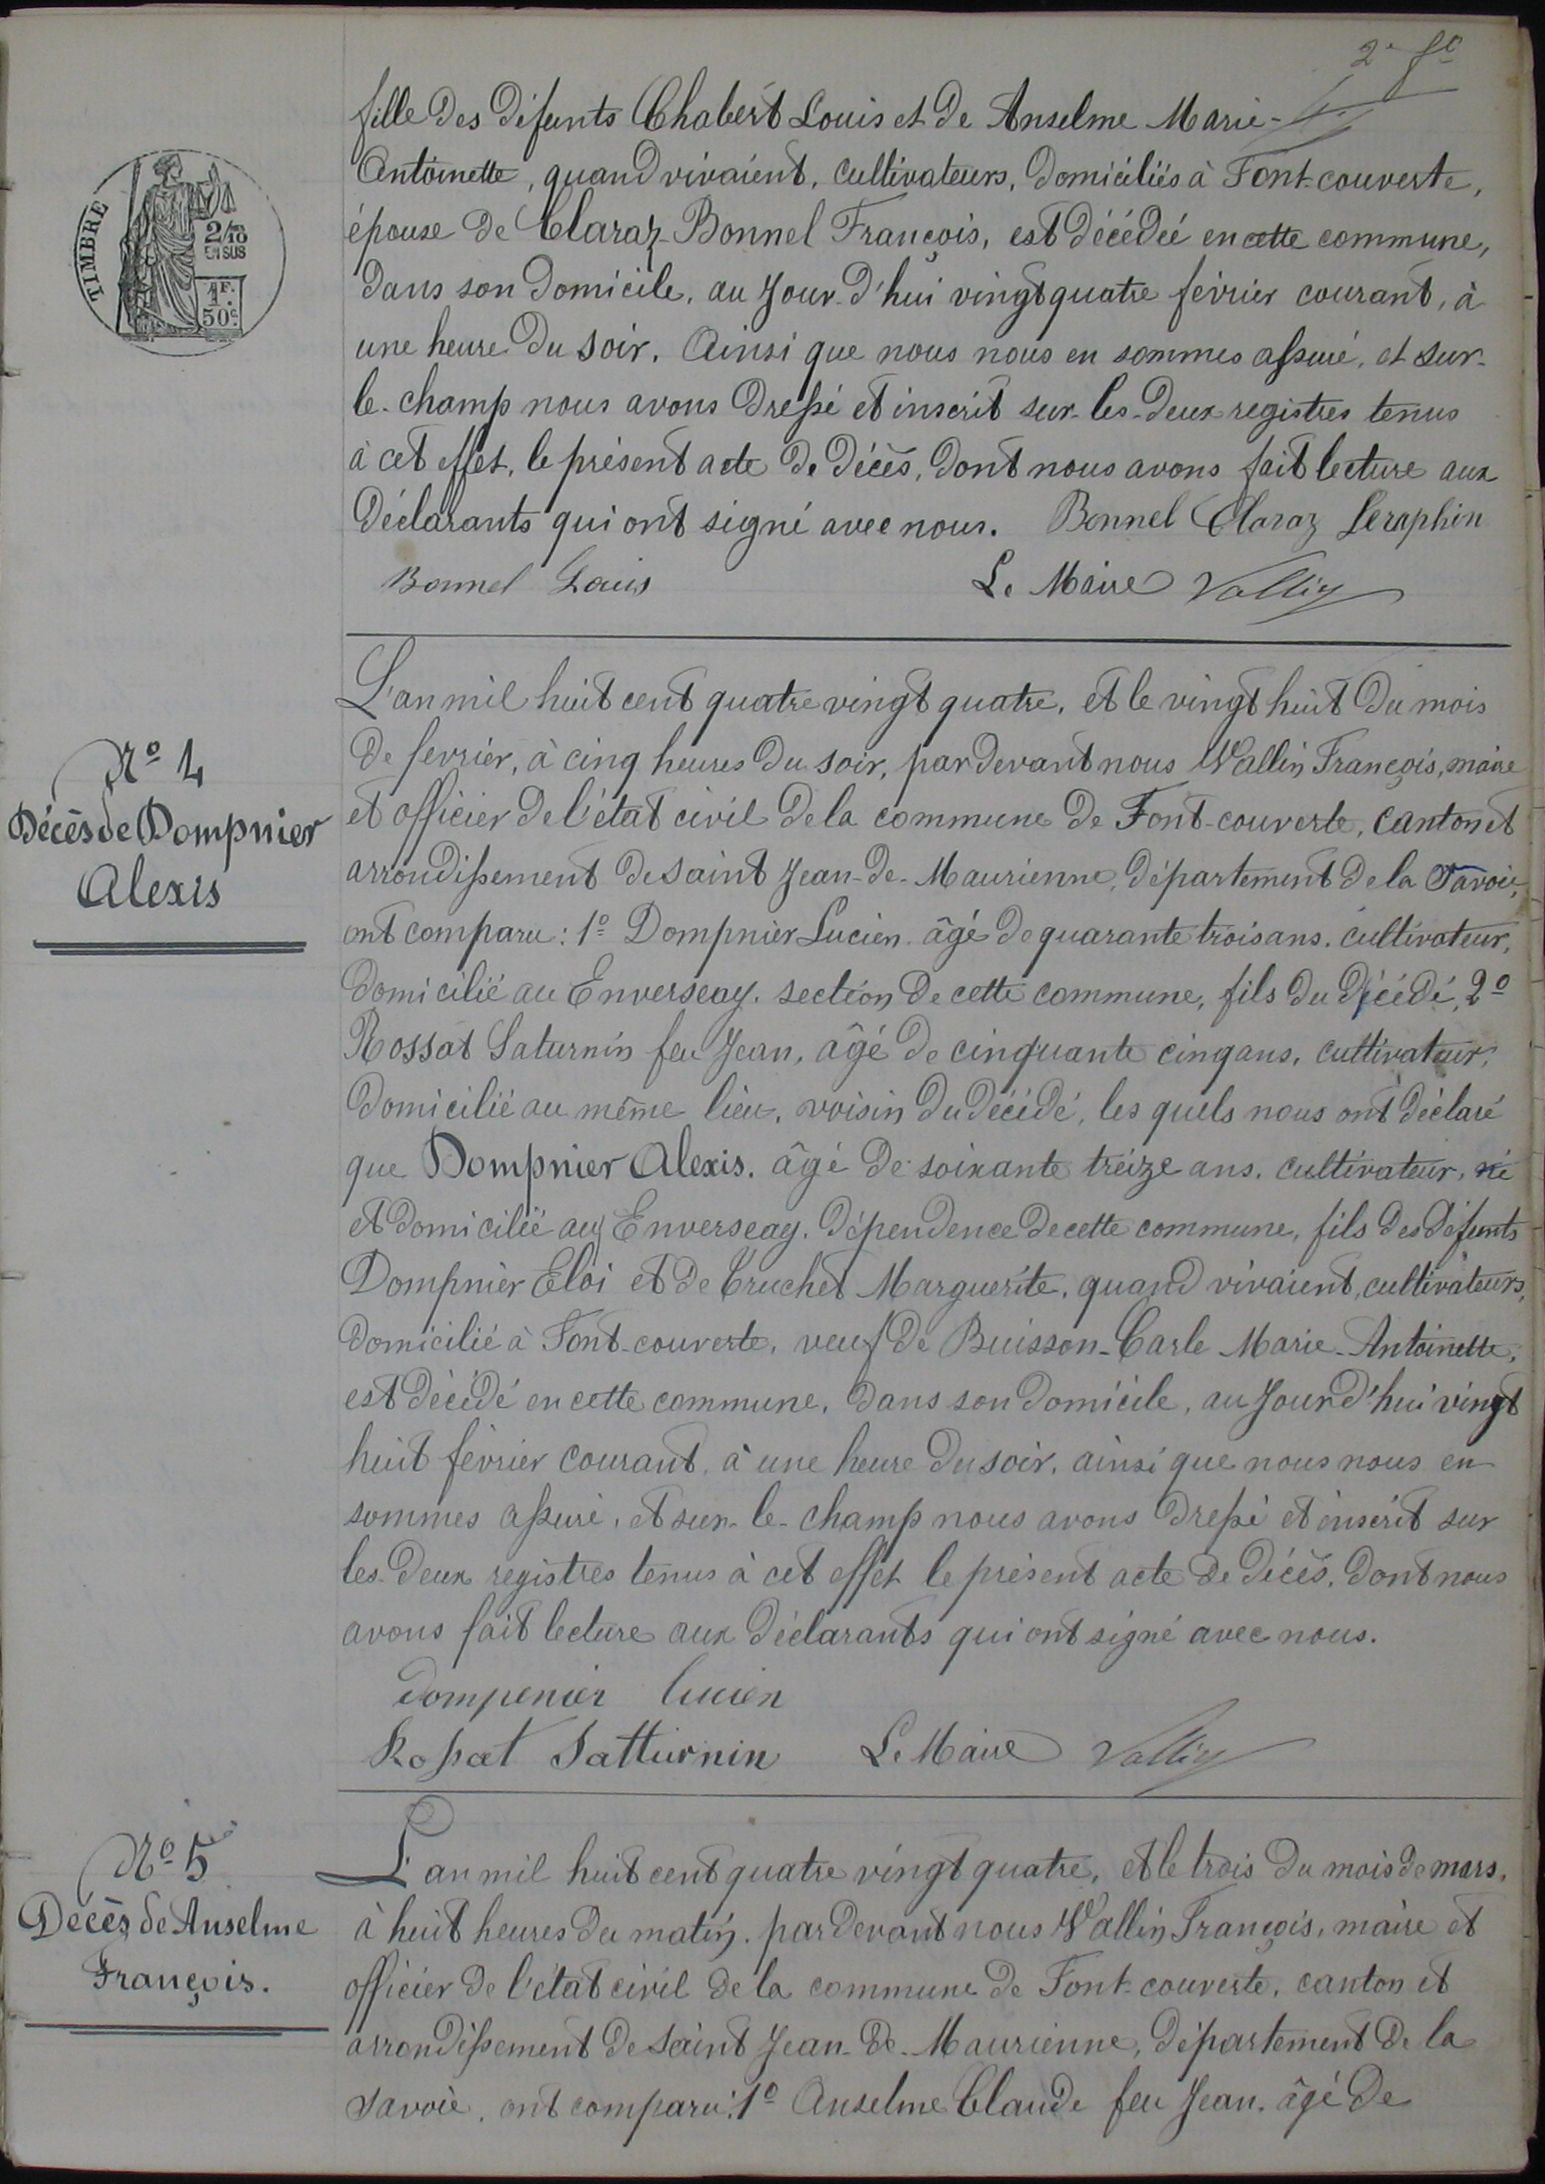 2e fo
fille des défunts Chabert Louis et de Anselme Marie-
Antoinette, quand vivaient, cultivateurs, domiciliés à Font-couverte,
épouse de Claraz-Bonnel François, est décédée en cette commune,
dans son domicile, au Jour-d'hui vingt quatre février courant, à
une heure du soir. Ainsi que nous nous en sommes assuré, et sur-
le-champ nous avons dressé et inscrit sur-les-deux registres tenus
à cet effet, le présent acte de décès, dont nous avons fait lecture aux
déclarants qui ont signé avec nous. Bonnel Claraz Seraphin
Bonnel Louis Le Maire Vallin
TIMBRE
2/10
EN SUS
1F.
50c.
L'an mil huit cent quatre vingt quatre, et le vingt huit du mois
de fevrier, à cinq heures du soir, par devant nous Vallin François, maire
et officier de l'état civil de la commune de Font-couverte, canton et
arrondissement de saint Jean-de-Maurienne, département de la Savoie,
ont comparu: 1o Dompnier Lucien âgé de quarante trois ans. cultivateur,
domicilié au Enverseay. section de cette commune, fils du décédé, 2o
Rossat Saturnin feu Jean, âgé de cinquante cinq ans, cultivateur,
domicilié au même lieu, voisin du décédé, les quels nous ont déclaré
que Dompnier Alexis. âgé de soixante treize ans. cultivateur, né
et domicilié au Enverseay. dépendence de cette commune, fils des défunts
Dompnier Eloi et de Truchet Marguerite, quand vivaient, cultivateurs,
domicilié à Font-couverte, veuf de Buisson-Carle Marie-Antoinette,
est décédé en cette commune, dans son domicile, au Jour d'hui vingt
huit février courant, à une heure du soir, ainsi que nous nous en
sommes assuré, et sur-le-champ nous avons dressé et inscrit sur
les-deux registres tenus à cet effet le présent acte de décès, dont nous
avons fait lecture aux déclarants qui ont signé avec nous.
dompenier lucien
Rossat Satturnin Le Maire Vallin
No 4
Décès de Dompnier
Alexis
L'an mil huit cent quatre vingt quatre, et le trois du mois de mars,
à huit heures du matin. par devant nous Vallin François, maire et
officier de l'état civil de la commune de Font-couverte, canton et
arrondissement de saint Jean-de-Maurienne, département de la
Savoie, ont comparu: 1o Anselme Claude feu Jean. âgé de
No 5
Décès de Anselme
François.